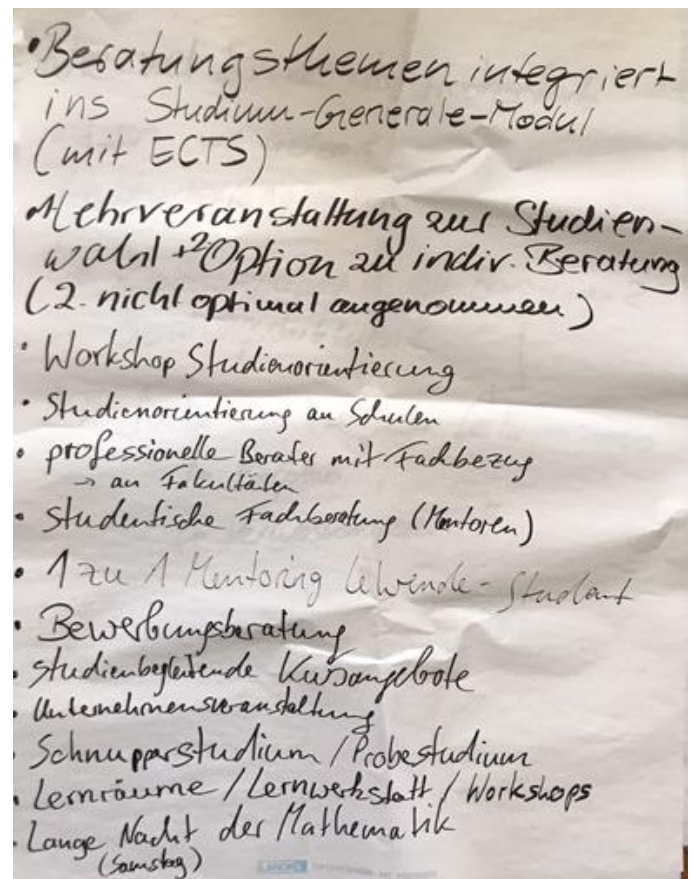 • Beratungsthemen integriert
ins Studium-Generale-Modul
(mit ECTS)
• Mehrveranstaltung zur Studien-
wahl +2 Option zu indiv. Beratung
(2. nicht optimal angenommen)
• Workshop Studienorientierung
• Studienorientierung an Schulen
• professionelle Berater mit Fachbezug
→ an Fakultäten
• studentische Fachberatung (Mentoren)
• 1 zu 1 Mentoring - Student
• Bewerbungsberatung
• studienbegleitende Kursangebote
• Unternehmensveranstaltung
• Schnupperstudium / Probestudium
• Lernräume / Lernwerkstatt / Workshops
• Lange Nacht der Mathematik
(Samstag)